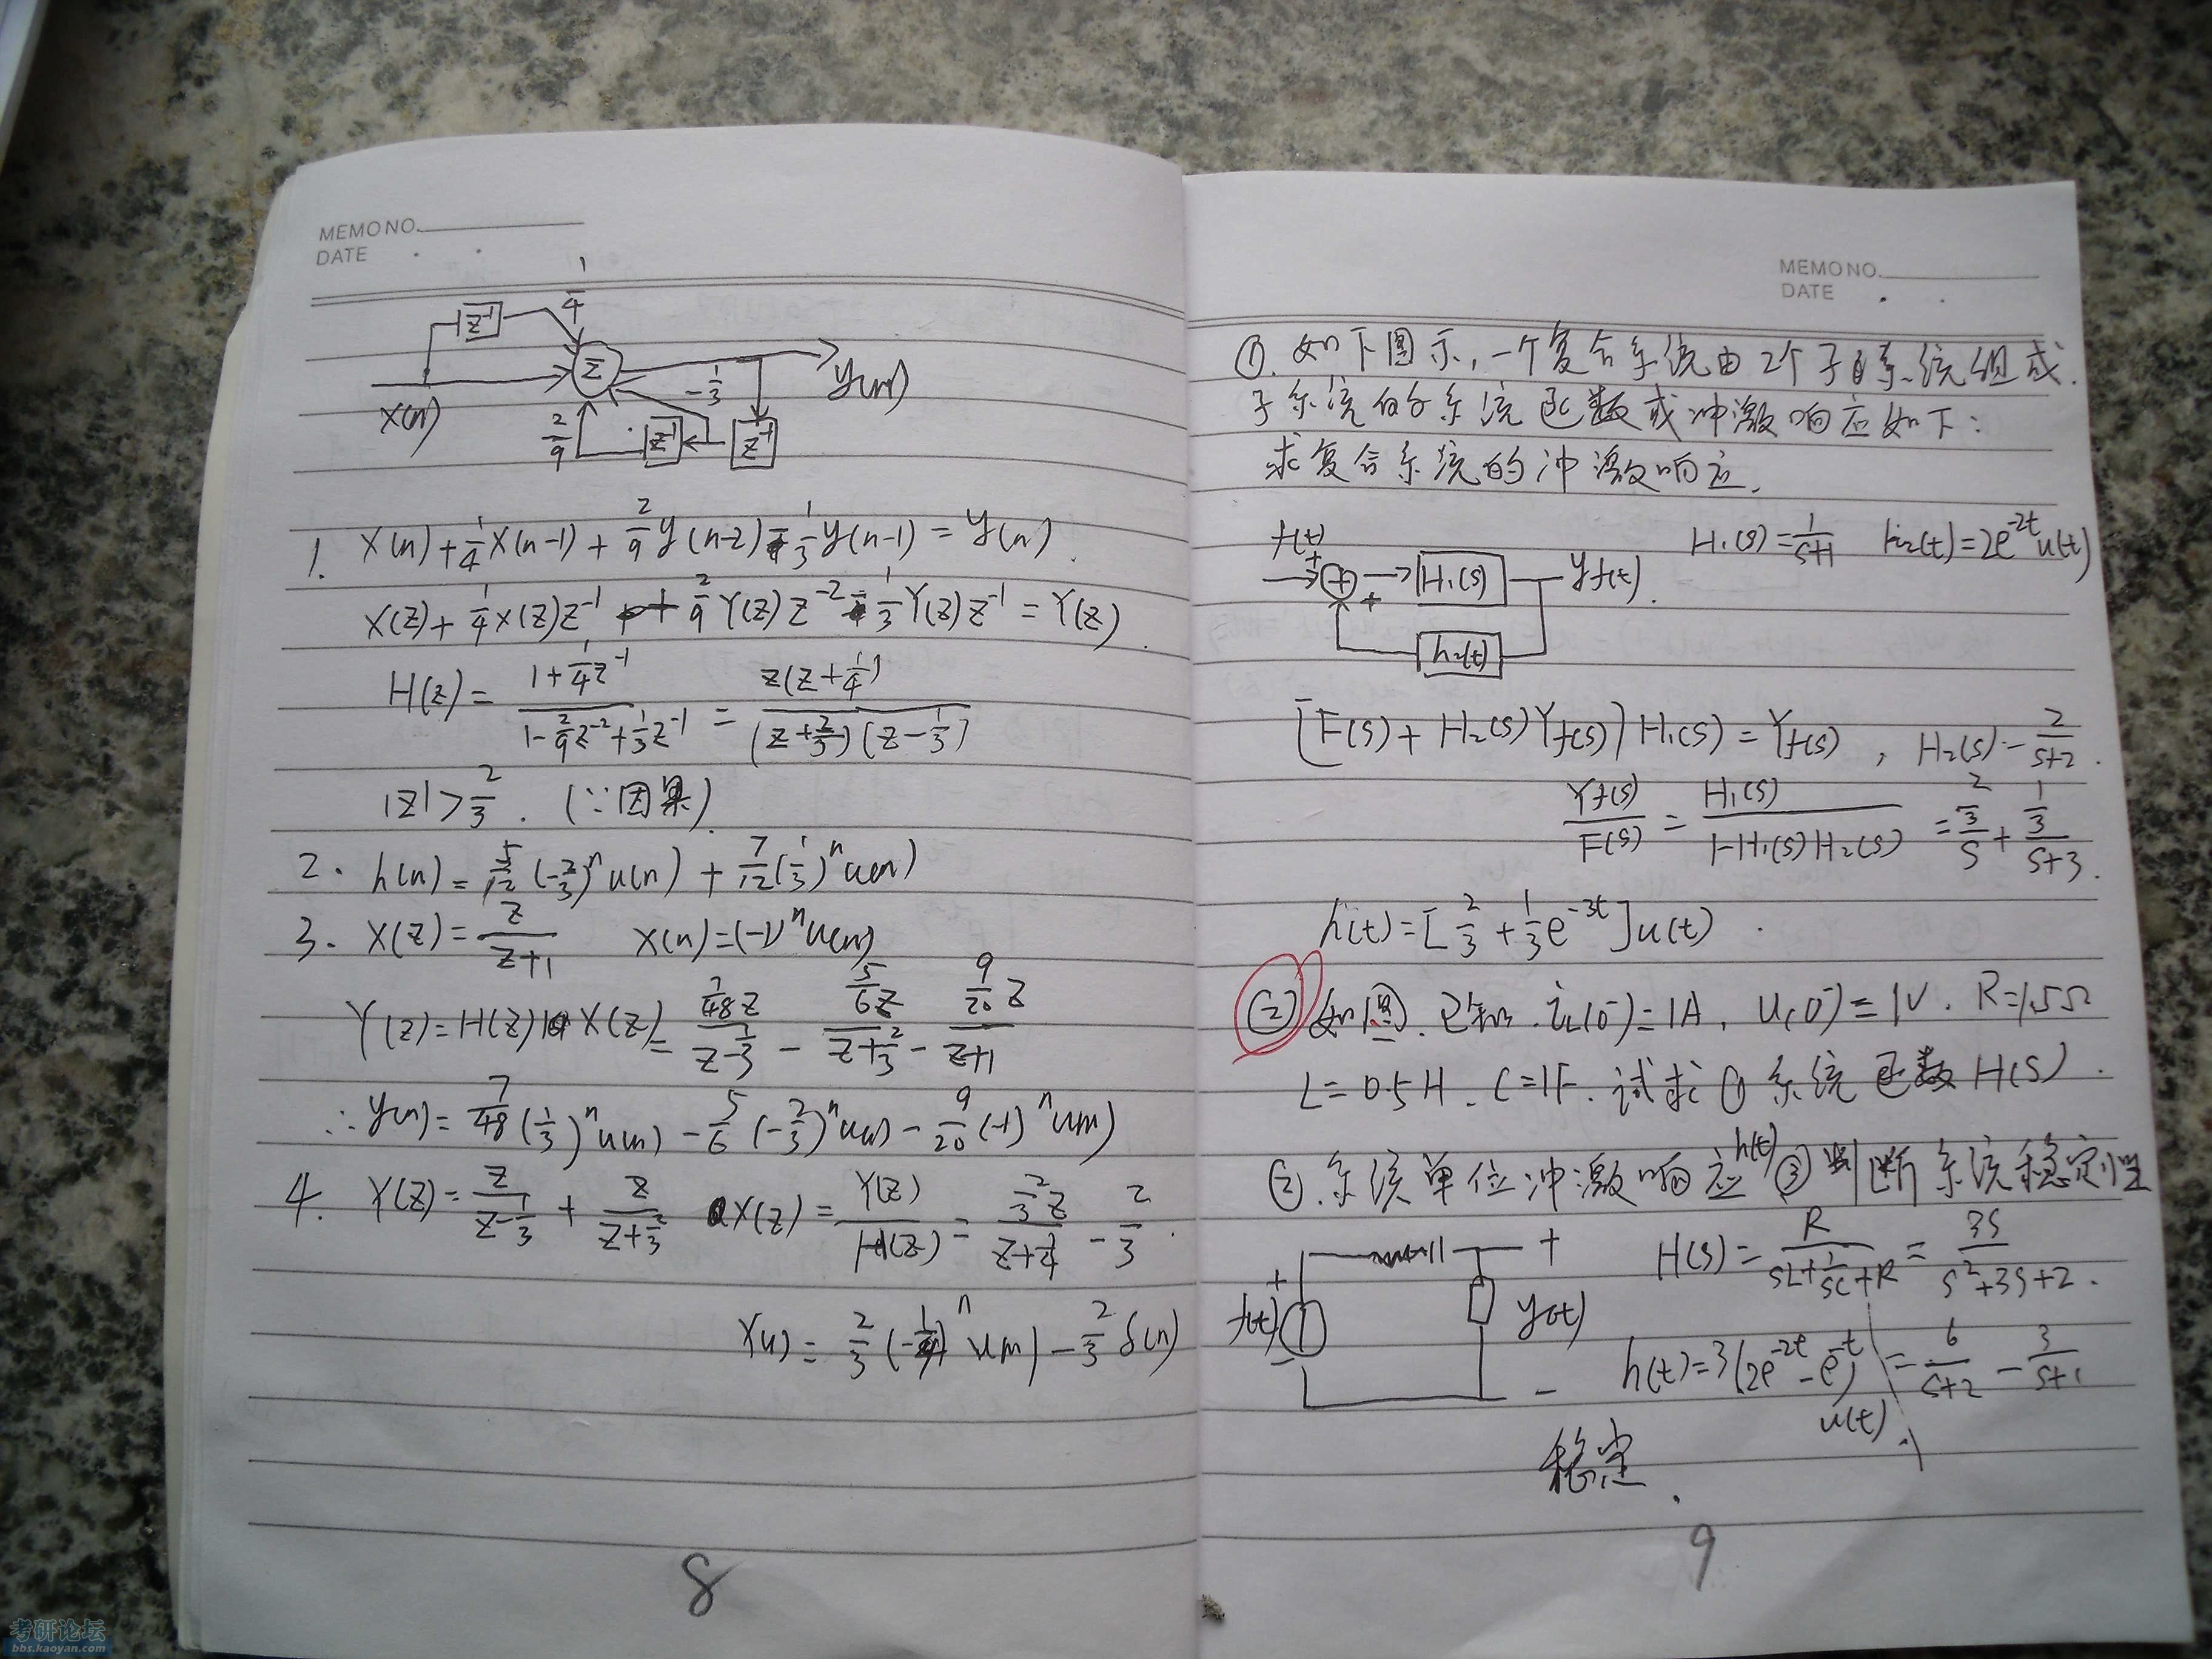 MEMO NO.
DATE
1/4
z⁻¹
Σ
-1/3
y(n)
x(n)
2/9
z⁻¹
z⁻¹
1. x(n)+1/4x(n-1)+2/9y(n-2)-1/3y(n-1)=y(n).
X(z)+1/4X(z)z⁻¹+2/9Y(z)z⁻²-1/3Y(z)z⁻¹=Y(z).
H(z)=(1+1/4z⁻¹)/(1-2/9z⁻²+1/3z⁻¹)=z(z+1/4)/((z+2/3)(z-1/3))
|z|>2/3. (∵因果).
2. h(n)=5/12(-2/3)ⁿu(n)+7/12(1/3)ⁿu(n)
3. X(z)=z/(z+1) x(n)=(-1)ⁿu(n)
Y(z)=H(z)X(z)=(7/48z)/(z-1/3)-(5/6z)/(z+2/3)-(9/20z)/(z+1)
∴y(n)=7/48(1/3)ⁿu(n)-5/6(-2/3)ⁿu(n)-9/20(-1)ⁿu(n)
4. Y(z)=z/(z-1/3)+z/(z+2/3) X(z)=Y(z)/H(z)=(2/3z)/(z+1/4)-2/3.
x(n)=2/3(-1/4)ⁿu(n)-2/3δ(n)
8
MEMO NO.
DATE
①. 如下图示,一个复合系统由2个子系统组成.
子系统的系统函数或冲激响应如下:
求复合系统的冲激响应.
H₁(s)=1/(s+1) h₂(t)=2e⁻²ᵗu(t)
f(t)
+
+
H₁(s)
yf(t).
+
h₂(t)
[F(s)+H₂(s)Yf(s)]H₁(s)=Yf(s), H₂(s)=2/(s+2).
Yf(s)/F(s)=H₁(s)/(1-H₁(s)H₂(s))=(2/3)/s+(1/3)/(s+3).
h(t)=[2/3+1/3e⁻³ᵗ]u(t).
② 如图. 已知. iL(0⁻)=1A, Uc(0⁻)=1V. R=1.5Ω
L=0.5H. C=1F. 试求①系统函数H(s).
②.系统单位冲激响应h(t)③判断系统稳定性
H(s)=R/(sL+1/sC+R)=3s/(s²+3s+2).
+
+
f(t)
y(t)
-
-
h(t)=3(2e⁻²ᵗ-e⁻ᵗ)u(t). =6/(s+2)-3/(s+1)
稳定.
9
考研论坛
bbs.kaoyan.com